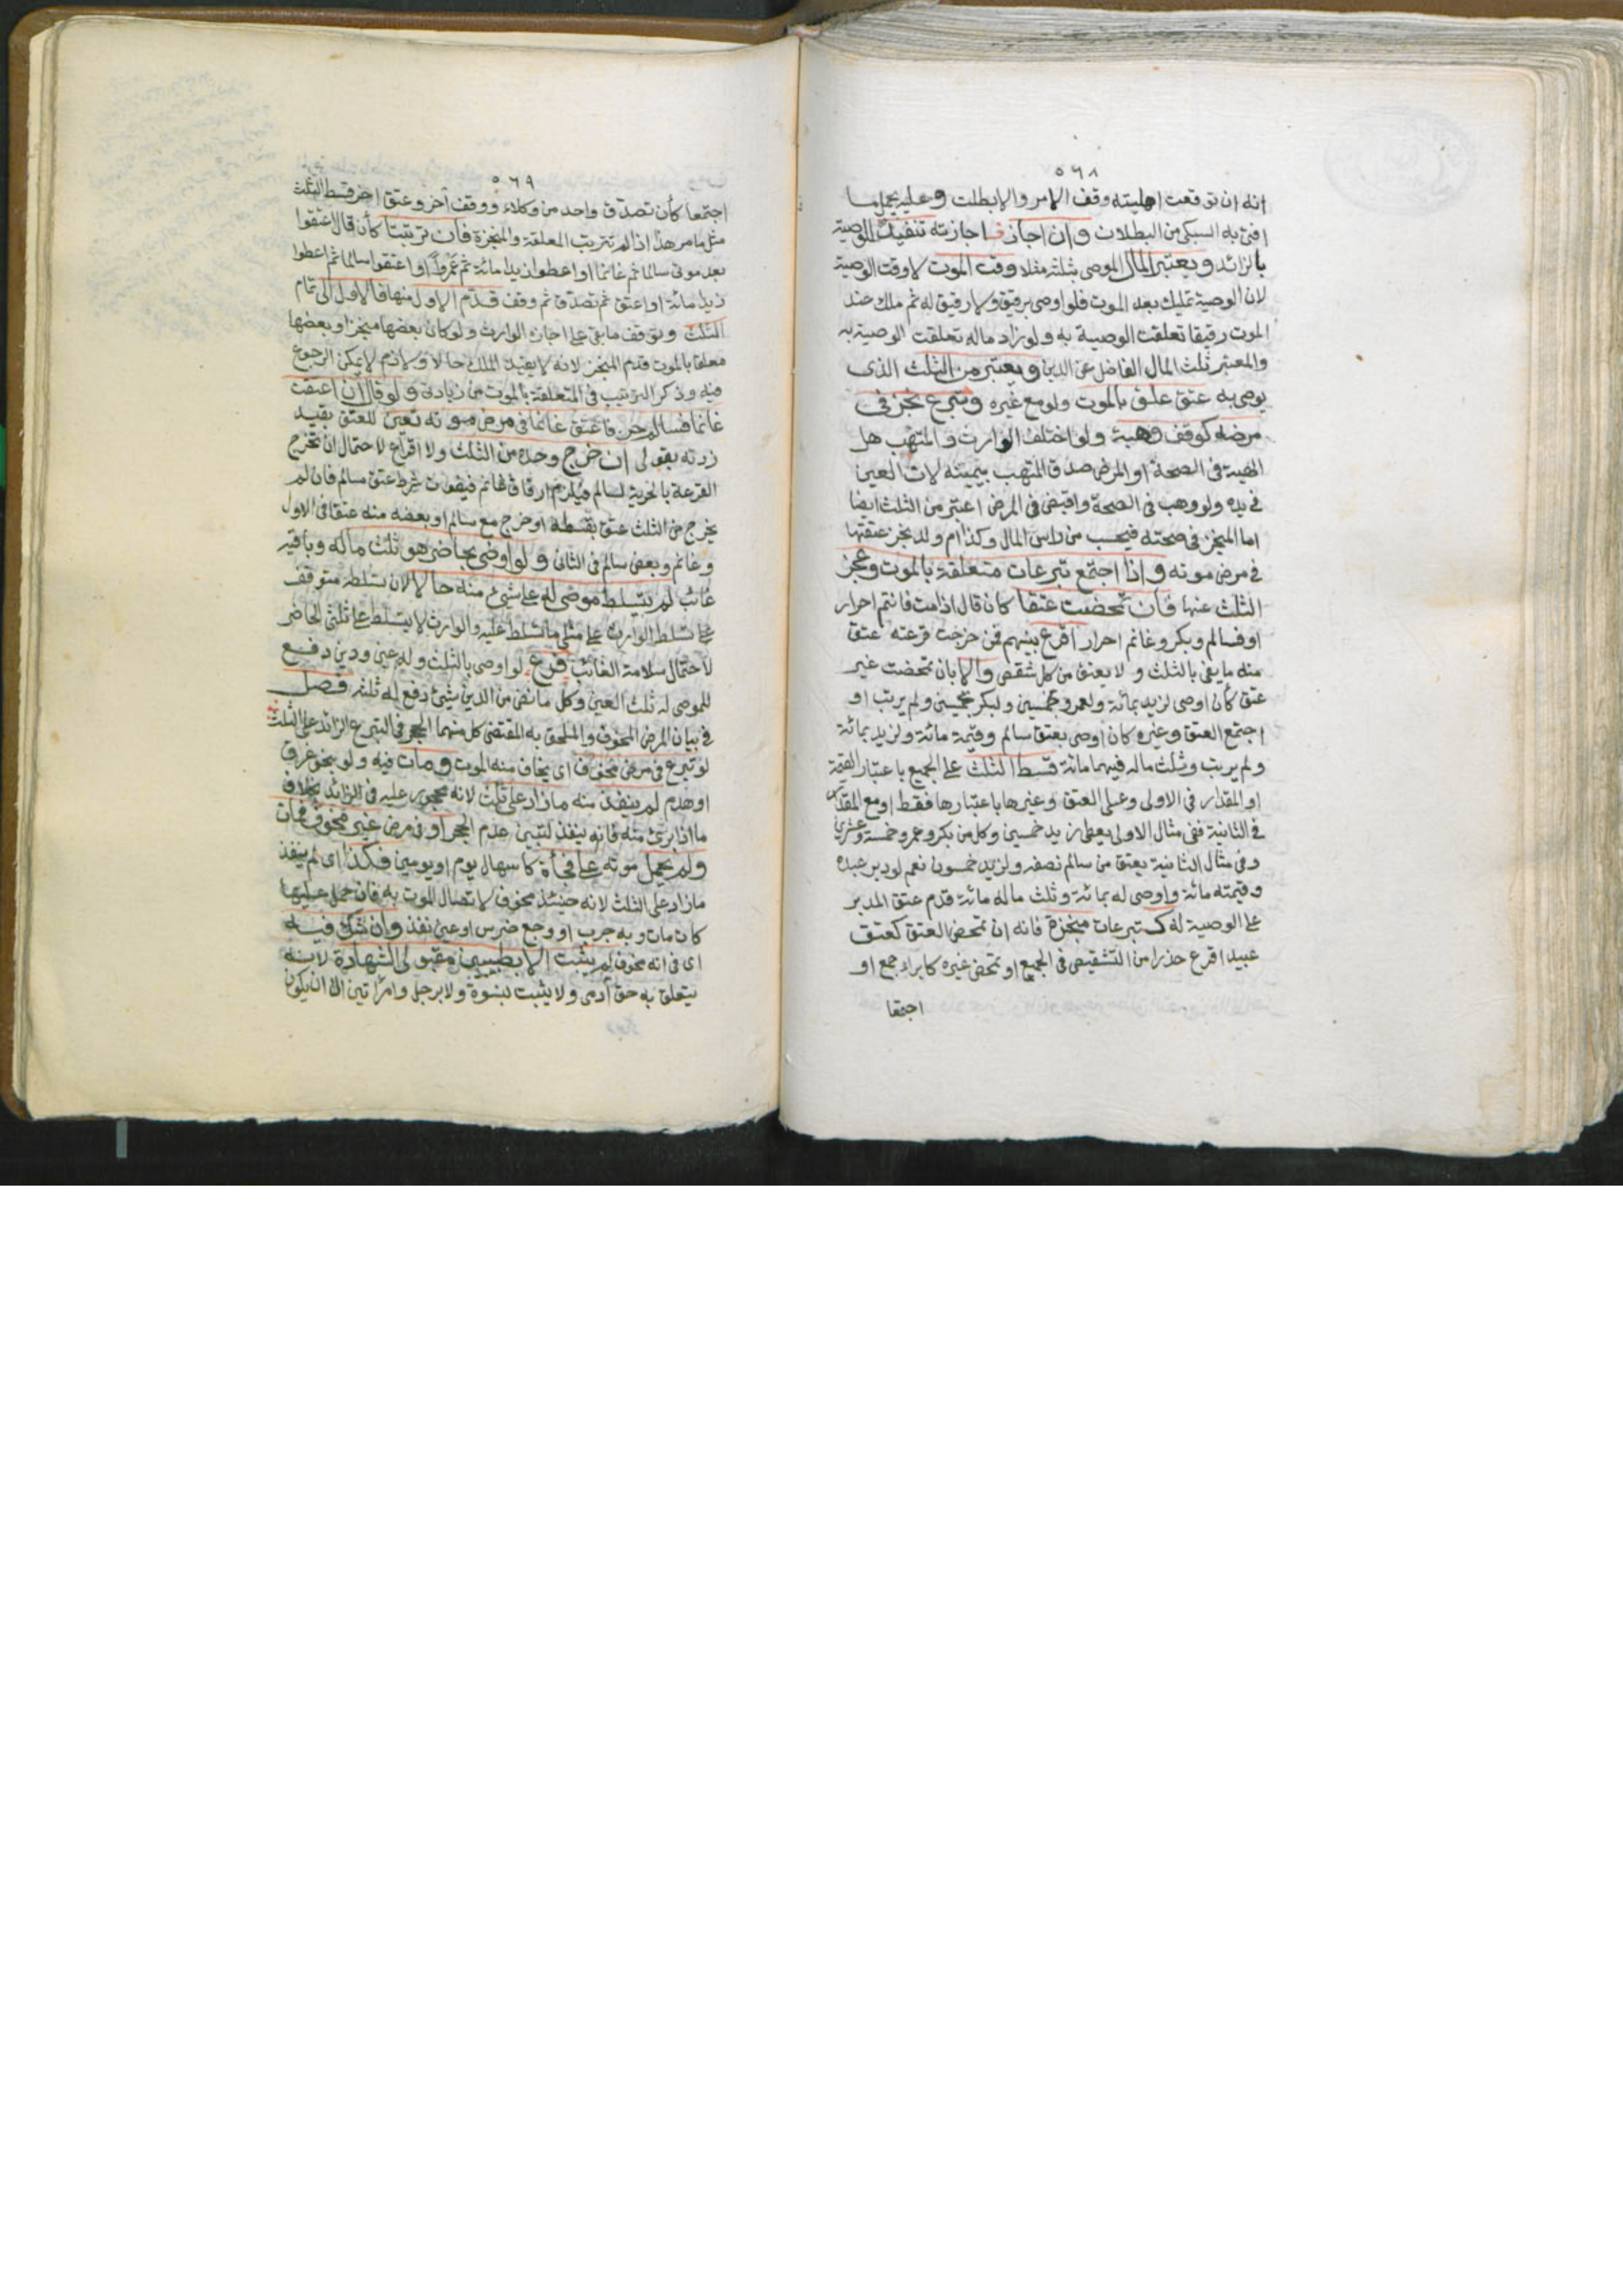 ٥٦٨
انه ان توقعت اهليته وقف الامر والا بطلت وعليه يحمل ما
افتى به السبكي من البطلان وان اجاز فاجازته تنفيذ للوصية
بالزائد ويعتبر المال الموصى بثلثه مثلا وقت الموت لا وقت الوصية
لان الوصية تمليك بعد الموت فلو اوصى برقيق ولا رقيق له ثم ملك عند
الموت رقيقا تعلقت الوصية به ولو زاد ماله تعلقت الوصية به
والمعتبر ثلث المال الفاضل عن الدين ويعتبر من الثلث الذى
يوصى به عتق علق بالموت ولو مع غيره وتبرع نجز فى
مرضه كوقف وهبة ولو اختلف الوارث والمتهب هل
الهبة فى الصحة او المرض صدق المتهب بيمينه لان العين
فى يده ولو وهب فى الصحة واقبض فى المرض اعتبر من الثلث ايضا
اما المنجز فى صحته فيحسب من راس المال وكذا ام ولد نجز عتقها
فى مرض موته واذا اجتمع تبرعات متعلقة بالموت وعجز
الثلث عنها فان تمحضت عتقا كان قال اذا مت فانتم احرار
او فسالم وبكر وغانم احرار اقرع بينهم فمن خرجت قرعته عتق
منه ما يفى بالثلث ولا يعتق من كل شقص والا بان تمحضت غير
عتق كأن اوصى لزيد بمائة ولعمرو بخمسين ولبكر بخمسين ولم يرتب او
اجتمع العتق وغيره كان اوصى بعتق سالم وقيمته مائة ولزيد بمائة
ولم يرتب وثلث ماله فيهما مائة قسط الثلث على الجميع باعتبار القيمة
او المقدار فى الاولى وعلى العتق وغيرها باعتبارها فقط او مع المقدار
فى الثانية ففى مثال الاولى يعطى زيد خمسين وكل من بكر وعمرو خمسة وعشرين
وفى مثال الثانية يعتق من سالم نصفه ولزيد خمسون نعم لو دبر عبده
وقيمته مائة واوصى له بمائة وثلث ماله مائة قدم عتق المدبر
على الوصية له كتبرعات منجزة فانه ان تمحض العتق كعتق
عبيد اقرع حذرا من التشقيص فى الجميع او تمحض غيره كابراء جمع او
اجتمعا
٥٦٩
اجتمعا كأن تصدق واحد من وكلاء ووقف آخر وعتق اخر قسط الثلث
مثل ما مر هذا اذا لم تترتب المعلقة والمنجزة فان ترتبتا كأن قال اعتقوا
بعد موتى سالما ثم غانما او اعطوا زيدا مائة ثم عمروا او اعتقوا سالما ثم اعطوا
زيدا مائة او اعتق ثم تصدق ثم وقف قدم الاول منها فالاول الى تمام
الثلث وتوقف ما بقى على اجازة الوارث ولو كان بعضها منجزا وبعضها
معلقا بالموت قدم المنجز لانه لا يفيد الملك حالا ولازم لا يمكن الرجوع
فيه وذكر الترتيب فى المتعلقة بالموت من زيادتى ولو قال ان اعتقت
غانما فسالم حر فاعتق غانما فى مرض موته تعين للعتق بقيد
زدته بقولى ان خرج وحده من الثلث ولا اقراع لاحتمال ان تخرج
القرعة بالحرية لسالم فيلزم ارقاق غانم فيفوت شرط عتق سالم فان لم
يخرج من الثلث عتق بقسطه او خرج مع سالم او بعضه منه عتقا فى الاول
وغانم وبعض سالم فى الثانى ولو اوصى بحاضر هو ثلث ماله وباقيه
غائب لم يتسلط موصى له على شىء منه حالا لان تسلطه متوقف
على تسلط الوارث على مثلى ما تسلط عليه والوارث لا يتسلط على ثلثى الحاضر
لاحتمال سلامة الغائب فرع لو اوصى بالثلث وله عين ودين دفع
للموصى له ثلث العين وكل ما نض من الدين شىء دفع له ثلثه فصل
فى بيان المرض المخوف والملحق به المقتضى كل منهما الحجر فى التبرع الزائد على الثلث
لو تبرع فى مرض مخوف اى يخاف منه الموت ومات فيه ولو بنحو غرق
او هدم لم ينفذ منه ما زاد على ثلث لانه محجور عليه فى الزائد بخلاف
ما اذا برئ منه فانه ينفذ لتبين عدم الحجر او فى مرض غير مخوف فمات
ولم يحمل موته على فجأة كاسهال يوم او يومين فكذا اى لم ينفذ
ما زاد على الثلث لانه حينئذ مخوف لاتصال الموت به فان حمل عليها
كان مات وبه جرب او وجع ضرس او عين نفذ وان شك فيه
اى فى انه مخوف لم يثبت الا بطبيبين مقبولى الشهادة لانه
يتعلق به حق آدمى ولا يثبت بنسوة ولا برجل وامرأتين الا ان يكون